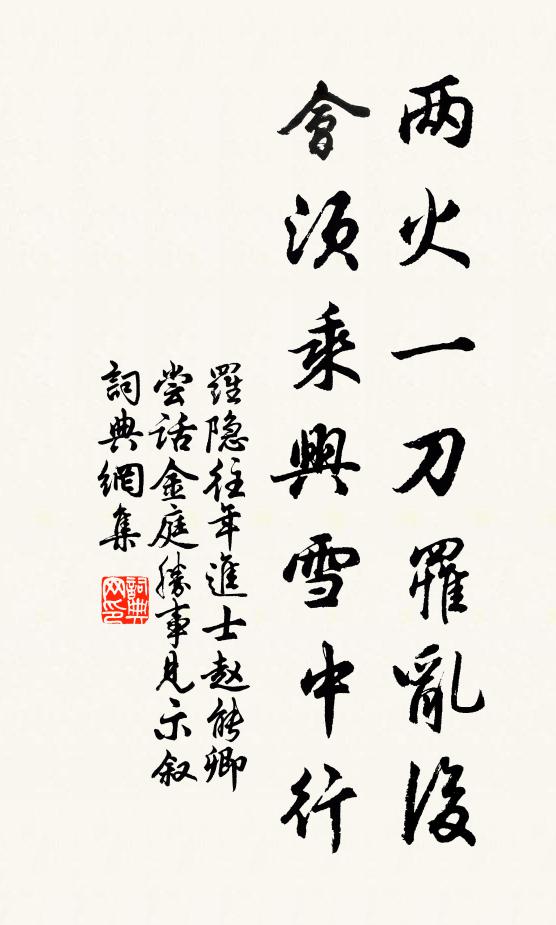 两火一刀罹亂後
會須乘興雪中行
羅隐往年進士赵能卿
尝话金庭勝事見示叙
詞典網集
詞典网印